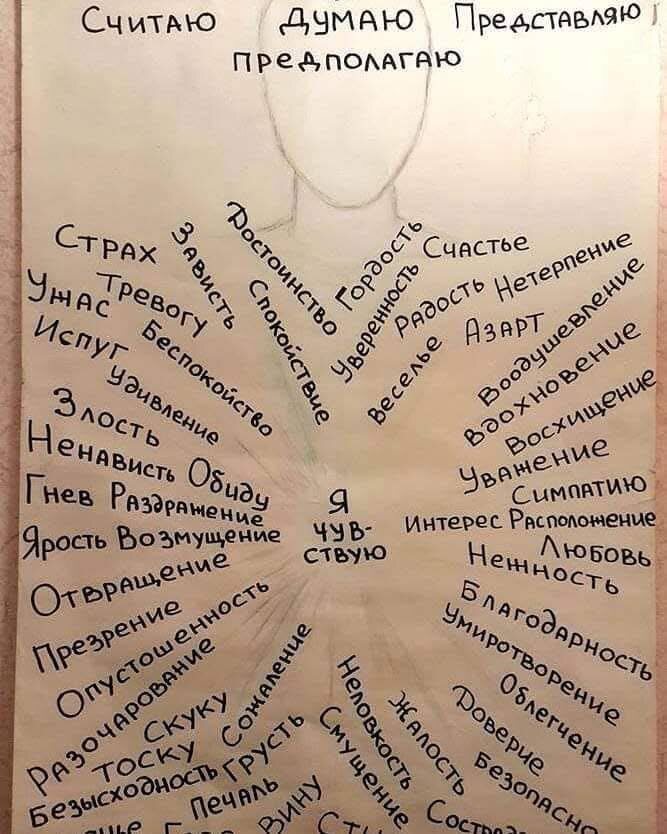 Считаю Думаю Представляю
предполагаю
Страх
Зависть
Достоинство
Гордость
Счастье
Ужас
Тревогу
Спокойствие
Уверенность
Радость
Нетерпение
Испуг
Беспокойство
Веселье
Азарт
Воодушевление
Удивление
Вдохновение
Злость
Восхищение
Ненависть
Обиду
Уважение
Гнев
Раздражение
Симпатию
Я
чув-
ствую
Интерес Расположение
Ярость Возмущение
Любовь
Нежность
Отвращение
Благодарность
Презрение
Умиротворение
Опустошенность
Облегчение
Разочарование
Доверие
Скуку
Сожаление
Неловкость
Жалость
Безопасн
Тоску
Грусть
Смущение
Безысходность
Печаль
Вину